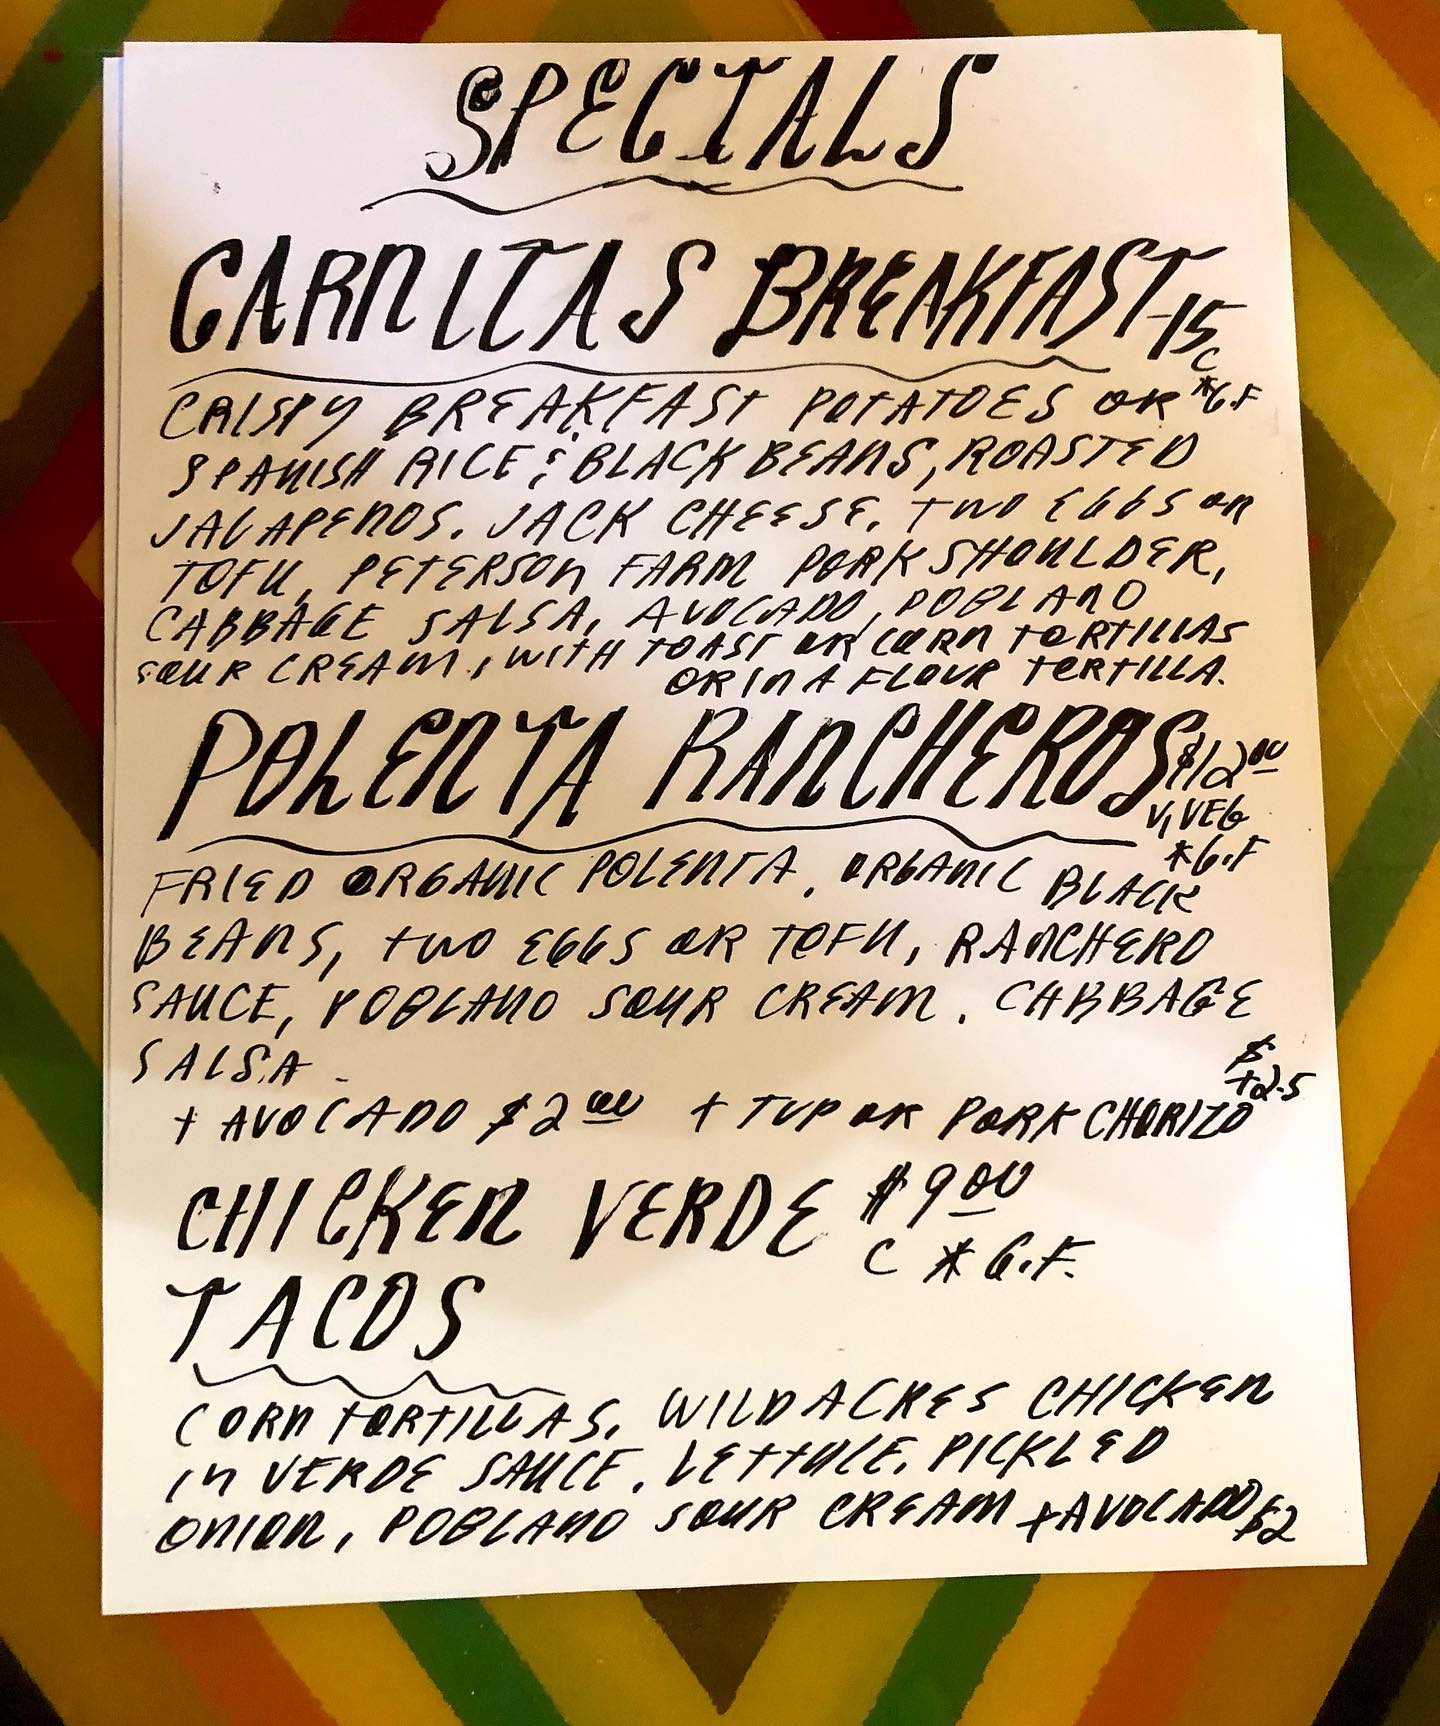 SPECIALS
CARNITAS BREAKFAST-15
C
*G.F
CRISPY BREAKFAST POTATOES OR
SPANISH RICE & BLACK BEANS, ROASTED
JALAPENOS, JACK CHEESE, TWO EGGS OR
TOFU, PETERSON FARM PORK SHOULDER,
CABBAGE SALSA, AVOCADO, POBLANO
SOUR CREAM, WITH TOAST OR CORN TORTILLAS
OR IN A FLOUR TORTILLA.
POLENTA RANCHEROS $12.00
V, VEG
*G.F
FRIED ORGANIC POLENTA, ORGANIC BLACK
BEANS, TWO EGGS OR TOFU, RANCHERO
SAUCE, POBLANO SOUR CREAM, CABBAGE
SALSA
+ AVOCADO $2.00 + TVP OR PORK CHORIZO $+2.5
CHICKEN VERDE $9.00
C * G.F.
TACOS
CORN TORTILLAS, WILD ACRES CHICKEN
IN VERDE SAUCE, LETTUCE, PICKLED
ONION, POBLANO SOUR CREAM +AVOCADO $2